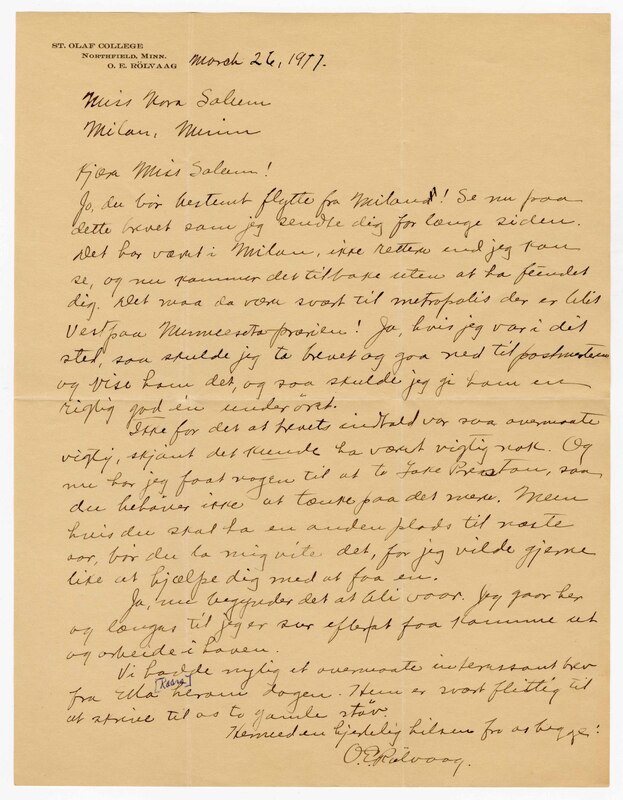 ST. OLAF COLLEGE
NORTHFIELD, MINN.
O. E. RÖLVAAG
March 26, 1917.
Miss Nora Solum
Milan, Minn
Kjære Miss Solum!
Jo, du bör bestemt flytte fra Milan! Se nu paa
dette brevet som jeg sendte dig for længe siden.
Det har været i Milan, ikke rettere end jeg kan
se, og nu kommer det tilbake uten at ha fundet
dig. Det maa da være svært til metropolis der er blit
vest paa Minnesotapræien! Ja, hvis jeg var i dit
sted, saa skulde jeg ta brevet og gaa ned til postmesteren
og vise ham det, og saa skulde jeg gi ham en
rigtig god én under öret.
Ikke for det at brevets indhold var saa overmaate
vigtig, skjönt det kunde ha været vigtig nok. Og
nu har jeg faat nogen til at ta Lake Preston, saa
du behöver ikke at tænke paa det mere. Men
hvis du skal ha en anden plads til næste
aar, bör du la mig vite det, for jeg vilde gjerne
like at hjælpe dig med at faa en.
Ja, nu begynder det at bli vaar. Jeg gaar her
og længas til jeg er sur efter at faa komme ut
og arbeide i haven.
Vi hadde nylig et overmaate interessant brev
fra Ella [Kaasa] herom dagen. Hun er svært flittig til
at skrive til os to gamle støv.
Hermed en hjertelig hilsen fra os begge!
O. E. Rölvaag.